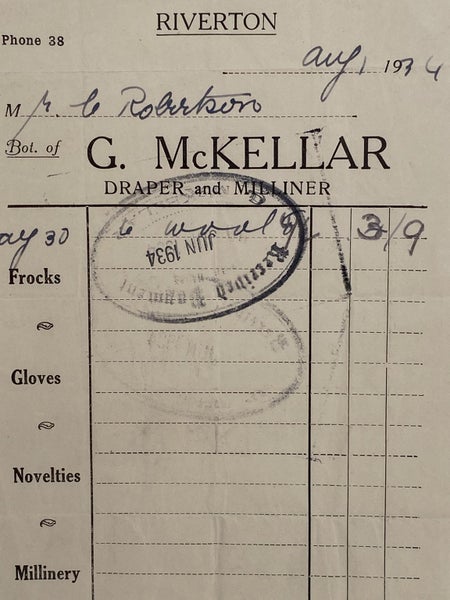 RIVERTON
Phone 38
Aug, 1934
Mr. C Robertson
Bot. of G. McKELLAR
DRAPER and MILLINER
ay 30 6 wool 3/9
JUN 1934
Received Payment
Frocks
Gloves
Novelties
Millinery